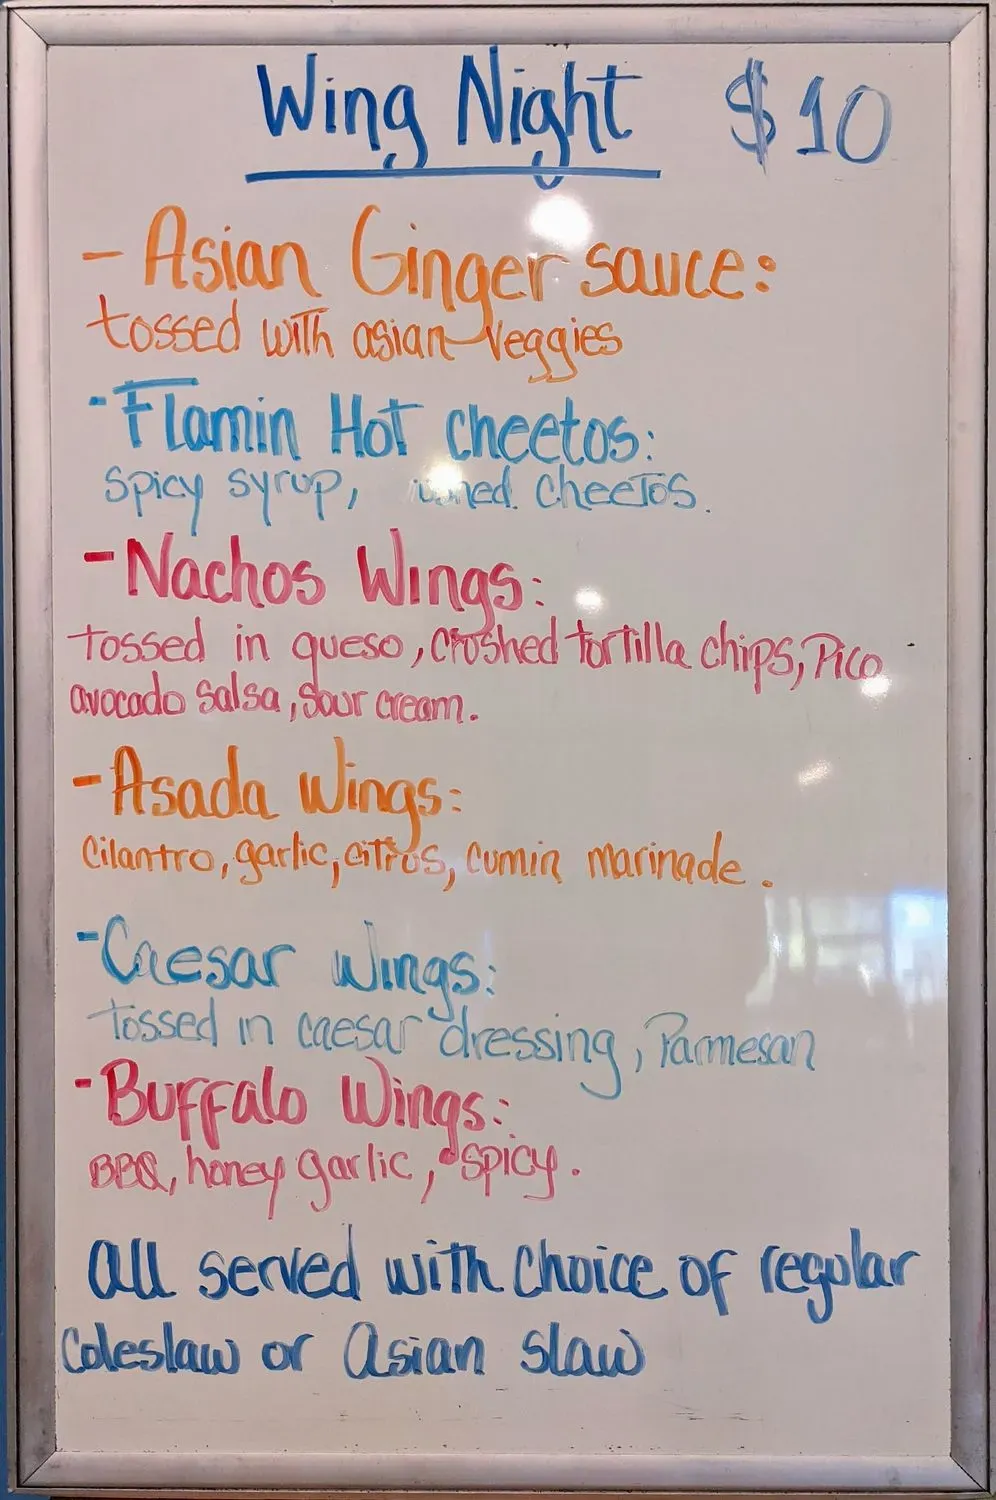 Wing Night $10
- Asian Ginger sauce:
tossed with asian veggies
- Flamin Hot cheetos:
spicy syrup, cheetos.
- Nachos Wings:
tossed in queso, crushed tortilla chips, Pico
avocado salsa, sour cream.
- Asada Wings:
cilantro, garlic, citrus, cumin marinade.
- Caesar Wings:
tossed in caesar dressing, Parmesan
- Buffalo Wings:
BBQ, honey garlic, spicy.
all served with choice of regular
coleslaw or asian slaw